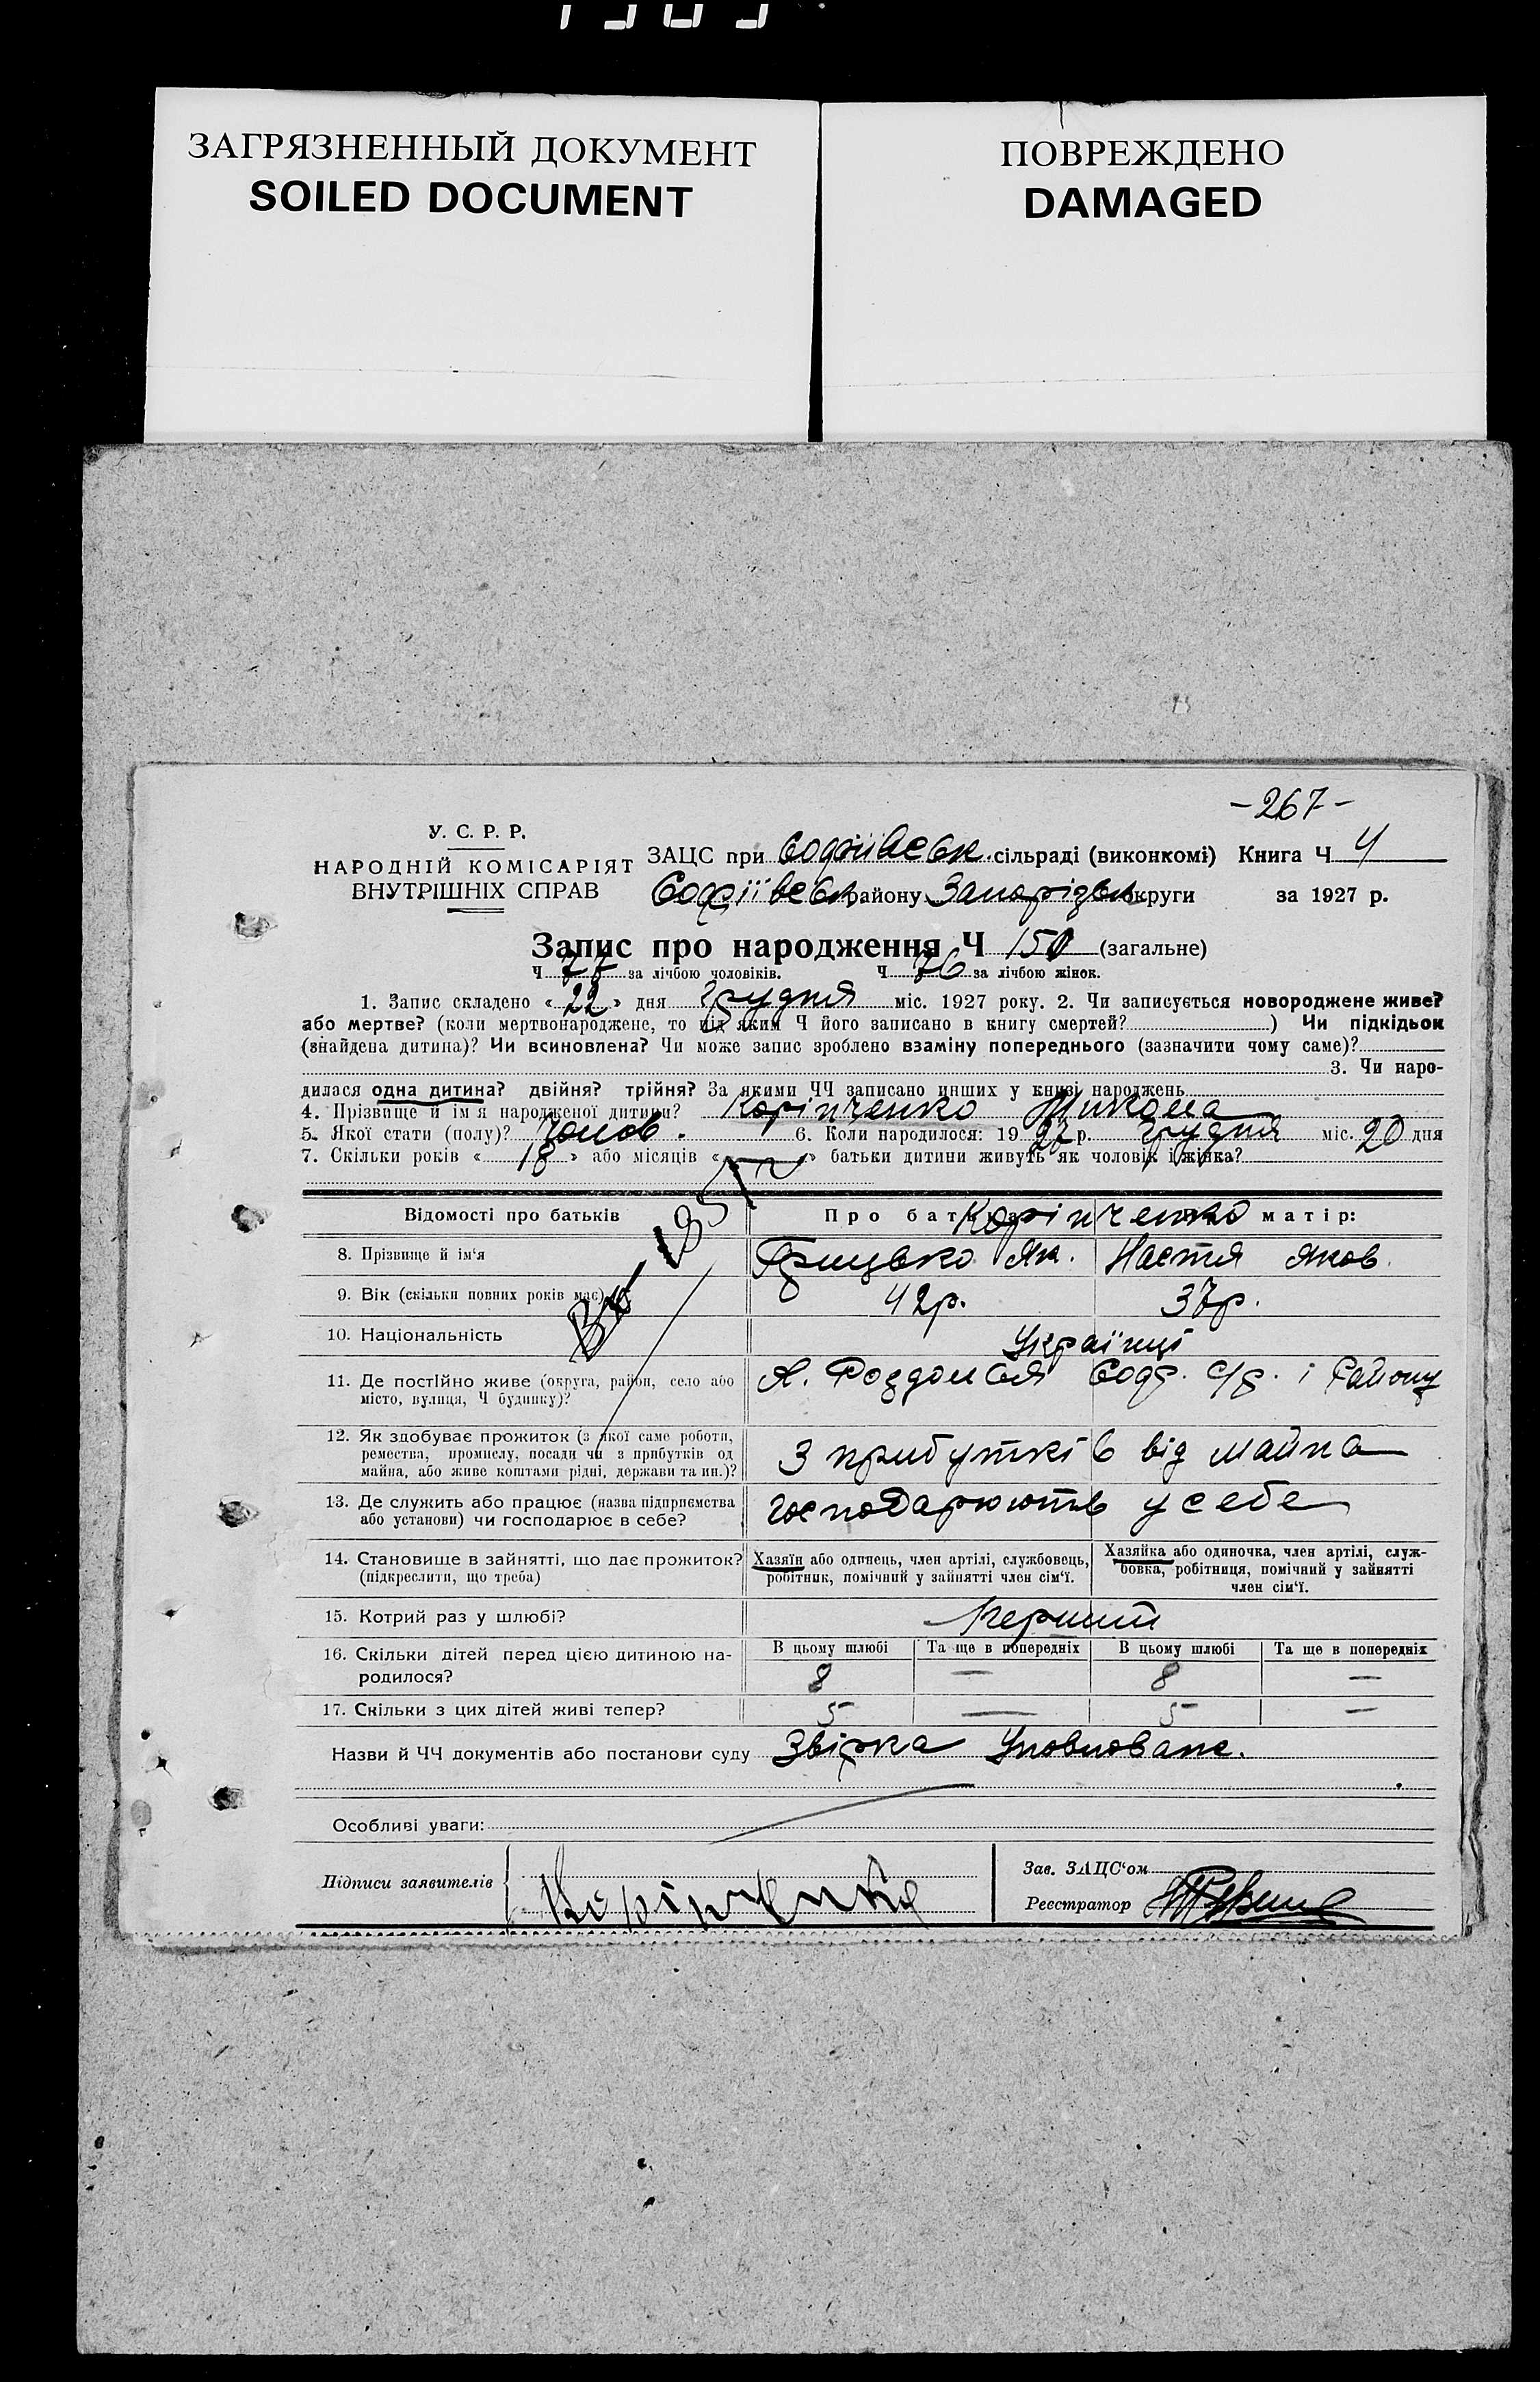 ЗАГРЯЗНЕННЫЙ ДОКУМЕНТ
SOILED DOCUMENT
ПОВРЕЖДЕНО
DAMAGED
-267-
У. С. Р. Р.
НАРОДНІЙ КОМІСАРІЯТ
ВНУТРІШНІХ СПРАВ
ЗАЦС при Софіївськ. сільраді (виконкомі) Книга Ч 4
Софіївськ району Запорізьк округи за 1927 р.
Запис про народження Ч 150 (загальне)
Ч 77 за лічбою чоловіків. Ч 76 за лічбою жінок.
1. Запис складено « 22 » дня Грудня міс. 1927 року. 2. Чи записується новороджене живе?
або мертве? (коли мертвонароджене, то під яким Ч його записано в книгу смертей? ) Чи підкідьок
(знайдена дитина)? Чи всиновлена? Чи може запис зроблено взаміну попереднього (зазначити чому саме)?
3. Чи наро-
дилася одна дитина? двійня? трійня? За якими ЧЧ записано инших у книзі народжень
4. Прізвище й ім'я народженої дитини? Корінченко Микола
5. Якої стати (полу)? Чолов. 6. Коли народилося: 1927 р. Грудня міс. 20 дня
7. Скільки років « 18 » або місяців « — » батьки дитини живуть як чоловік і жінка?
Відомості про батьків Про батька Корінченко матір:
8. Прізвище й ім'я Грицько Як. Настя Яков.
9. Вік (скільки повних років має) 42р. 37р.
10. Національність Українці
11. Де постійно живе (округа, район, село або
місто, вулиця, Ч будинку)? Роздолля Соф. с/р. і Району
12. Як здобуває прожиток (з якої саме роботи,
ремества, промислу, посади чи з прибутків од
майна, або живе коштами рідні, держави та ин.)? З прибутків від майна
13. Де служить або працює (назва підприємства
або установи) чи господарює в себе? господарюють у себе
14. Становище в зайнятті, що дає прожиток?
(підкреслити, що треба)
Хазяїн або одинець, член артілі, службовець,
робітник, помічний у зайнятті член сім'ї.
Хазяйка або одиночка, член артілі, служ-
бовка, робітниця, помічний у зайнятті
член сім'ї.
15. Котрий раз у шлюбі? Перший
16. Скільки дітей перед цією дитиною на-
родилося?
В цьому шлюбі Та ще в попередніх В цьому шлюбі Та ще в попередніх
8 — 8 —
17. Скільки з цих дітей живі тепер? 5 — 5 —
Назви й ЧЧ документів або постанови суду Звірка
Особливі уваги:
Підписи заявителів Корінченко
Зав. ЗАЦС'ом
Реєстратор